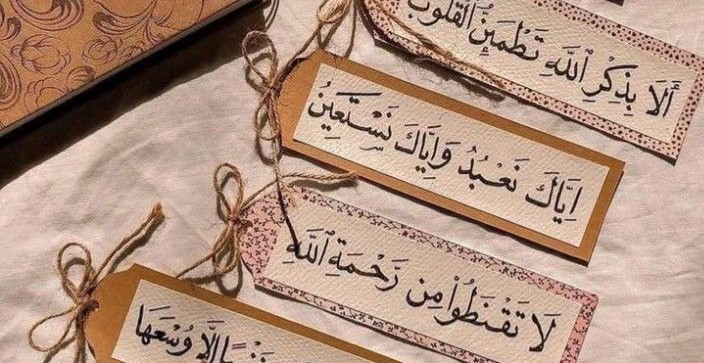 أَلَا بِذِكْرِ ٱللَّهِ تَطْمَئِنُّ ٱلْقُلُوبُ
اِيَّاكَ نَعْبُدُ وَاِيَّاكَ نَسْتَعِينُ
لَا تَقْنَطُوا۟ مِن رَّحْمَةِ ٱللَّهِ
إِلَّا وُسْعَهَا